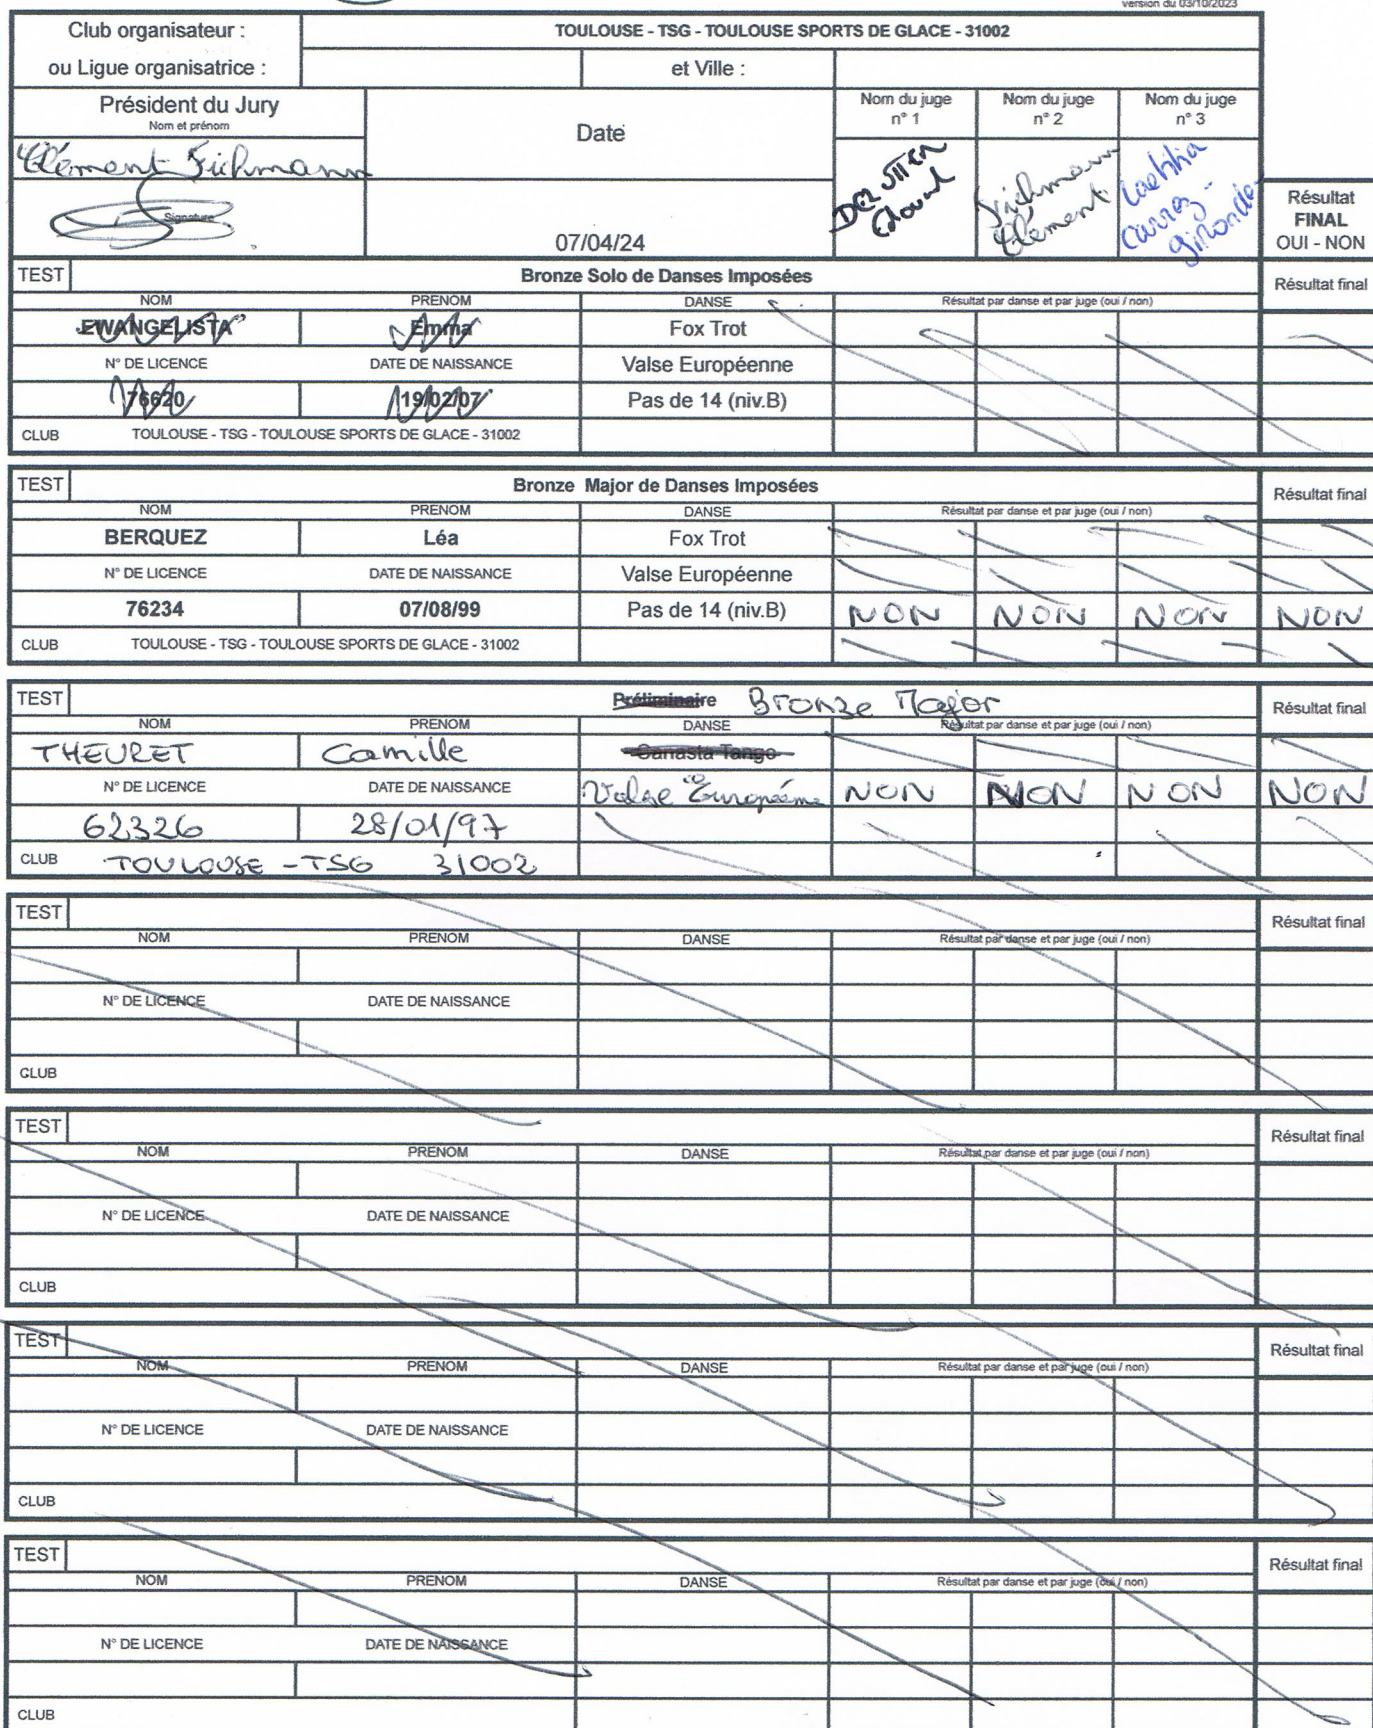 version du 03/10/2023
Club organisateur : TOULOUSE - TSG - TOULOUSE SPORTS DE GLACE - 31002
ou Ligue organisatrice : et Ville :
Président du Jury Date Nom du juge n° 1 Nom du juge n° 2 Nom du juge n° 3
Nom et prénom
Clément Fichmann
Fichmann Clément
Laetitia Carrez-Gironde
Signature
07/04/24
Résultat
FINAL
OUI - NON
TEST Bronze Solo de Danses Imposées Résultat final
NOM PRENOM DANSE Résultat par danse et par juge (oui / non)
EWANGELISTA Emma Fox Trot
N° DE LICENCE DATE DE NAISSANCE Valse Européenne
76620 19/02/07 Pas de 14 (niv.B)
CLUB TOULOUSE - TSG - TOULOUSE SPORTS DE GLACE - 31002
TEST Bronze Major de Danses Imposées Résultat final
NOM PRENOM DANSE Résultat par danse et par juge (oui / non)
BERQUEZ Léa Fox Trot
N° DE LICENCE DATE DE NAISSANCE Valse Européenne
76234 07/08/99 Pas de 14 (niv.B) NON NON NON NON
CLUB TOULOUSE - TSG - TOULOUSE SPORTS DE GLACE - 31002
TEST Préliminaire Bronze Major Résultat final
NOM PRENOM DANSE Résultat par danse et par juge (oui / non)
THEURET Camille Canasta Tango
N° DE LICENCE DATE DE NAISSANCE Valse Européenne NON NON NON NON
62326 28/01/97
CLUB TOULOUSE - TSG 31002
TEST Résultat final
NOM PRENOM DANSE Résultat par danse et par juge (oui / non)
N° DE LICENCE DATE DE NAISSANCE
CLUB
TEST Résultat final
NOM PRENOM DANSE Résultat par danse et par juge (oui / non)
N° DE LICENCE DATE DE NAISSANCE
CLUB
TEST Résultat final
NOM PRENOM DANSE Résultat par danse et par juge (oui / non)
N° DE LICENCE DATE DE NAISSANCE
CLUB
TEST Résultat final
NOM PRENOM DANSE Résultat par danse et par juge (oui / non)
N° DE LICENCE DATE DE NAISSANCE
CLUB